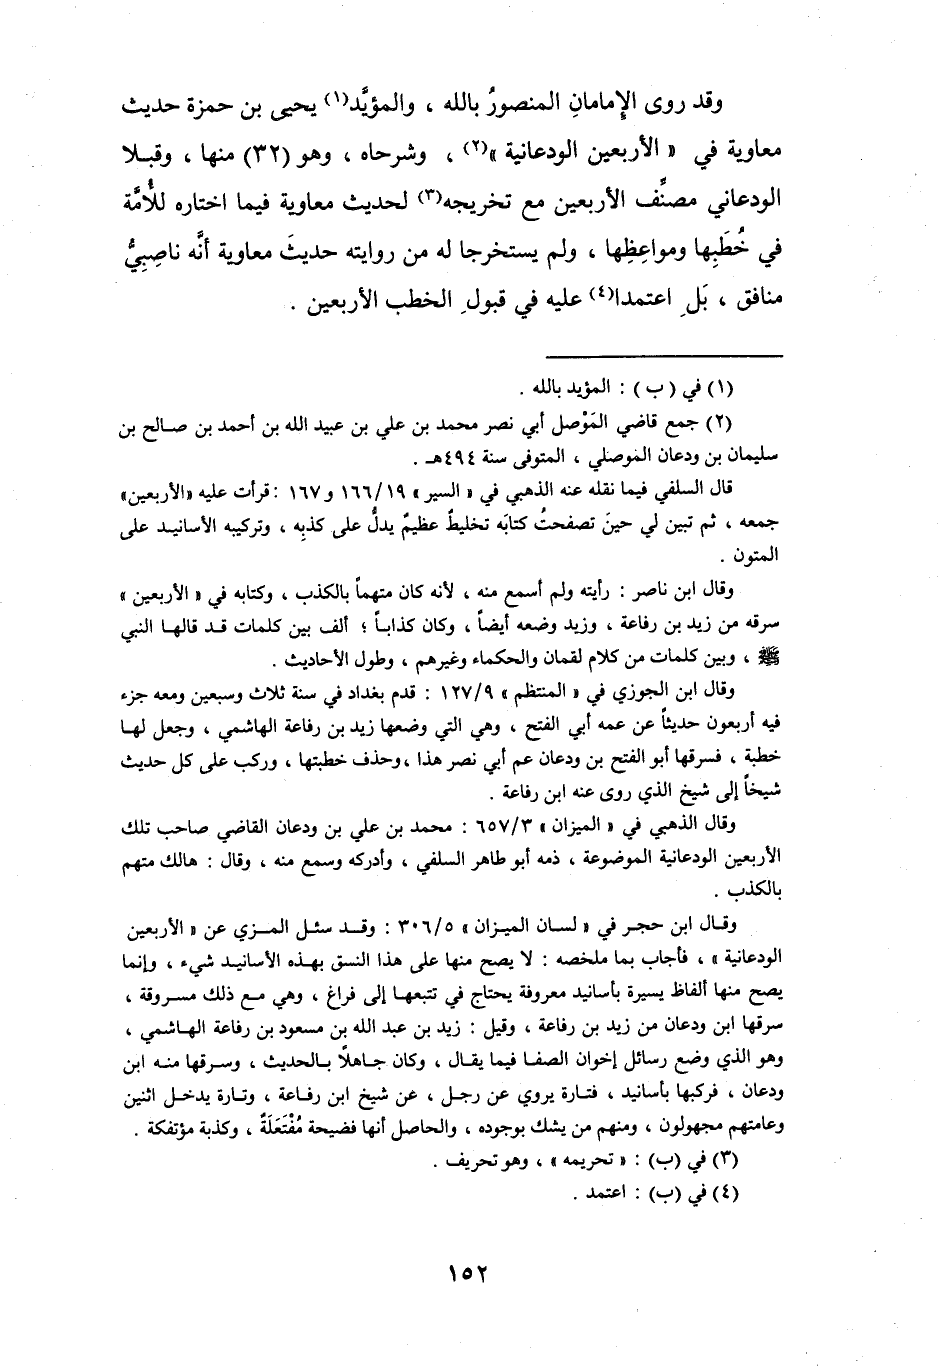 وقد روى الإمامانِ المنصورُ بالله ، والمؤيَّد(١) يحيى بن حمزة حديث
معاوية في « الأربعين الودعانية »(٢) ، وشرحاه ، وهو (٣٢) منها ، وقبلا
الودعاني مصنِّف الأربعين مع تخريجه(٣) لحديث معاوية فيما اختاره للأُمَّة
في خُطَبِها ومواعِظِها ، ولم يستخرجا له من روايته حديثَ معاوية أنَّه ناصِبِيٌّ
منافق ، بَلِ اعتمدا(٤) عليه في قبولِ الخطب الأربعين .
(١) في ( ب ) : المؤيد بالله .
(٢) جمع قاضي المَوْصل أبي نصر محمد بن علي بن عبيد الله بن أحمد بن صالح بن
سليمان بن ودعان الموصلي ، المتوفى سنة ٤٩٤هـ .
قال السلفي فيما نقله عنه الذهبي في « السير » ١٦٦/١٩ و١٦٧ : قرأت عليه «الأربعين»
جمعه ، ثم تبين لي حينَ تصفحتُ كتابَه تخليطٌ عظيمٌ يدلُّ على كذبِه ، وتركيبه الأسانيد على
المتون .
وقال ابن ناصر : رأيته ولم أسمع منه ، لأنه كان متهماً بالكذب ، وكتابه في « الأربعين »
سرقه من زيد بن رفاعة ، وزيد وضعه أيضاً ، وكان كذاباً ؛ ألف بين كلمات قد قالها النبي
ﷺ ، وبين كلمات من كلام لقمان والحكماء وغيرهم ، وطول الأحاديث .
وقال ابن الجوزي في « المنتظم » ١٢٧/٩ : قدم بغداد في سنة ثلاث وسبعين ومعه جزء
فيه أربعون حديثاً عن عمه أبي الفتح ، وهي التي وضعها زيد بن رفاعة الهاشمي ، وجعل لها
خطبة ، فسرقها أبو الفتح بن ودعان عم أبي نصر هذا ،وحذف خطبتها ، وركب على كل حديث
شيخاً إلى شيخ الذي روى عنه ابن رفاعة .
وقال الذهبي في « الميزان » ٦٥٧/٣ : محمد بن علي بن ودعان القاضي صاحب تلك
الأربعين الودعانية الموضوعة ، ذمه أبو طاهر السلفي ، وأدركه وسمع منه ، وقال : هالك متهم
بالكذب .
وقال ابن حجر في « لسان الميزان » ٣٠٦/٥ : وقد سئل المزي عن « الأربعين
الودعانية » ، فأجاب بما ملخصه : لا يصح منها على هذا النسق بهذه الأسانيد شيء ، وإنما
يصح منها ألفاظ يسيرة بأسانيد معروفة يحتاج في تتبعها إلى فراغ ، وهي مع ذلك مسروقة ،
سرقها ابن ودعان من زيد بن رفاعة ، وقيل : زيد بن عبد الله بن مسعود بن رفاعة الهاشمي ،
وهو الذي وضع رسائل إخوان الصفا فيما يقال ، وكان جاهلاً بالحديث ، وسرقها منه ابن
ودعان ، فركبها بأسانيد ، فتارة يروي عن رجل ، عن شيخ ابن رفاعة ، وتارة يدخل اثنين
وعامتهم مجهولون ، ومنهم من يشك بوجوده ، والحاصل أنها فضيحة مُفْتَعَلَةٌ ، وكذبة مؤتفكة .
(٣) في (ب) : « تحريمه » ، وهو تحريف .
(٤) في (ب) : اعتمد .
١٥٢